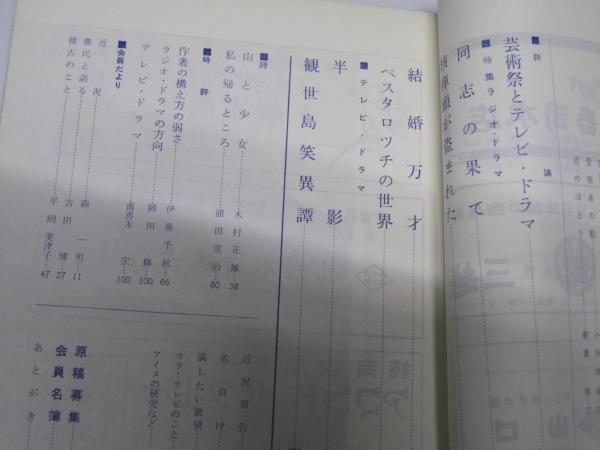 評論
芸術祭とテレビ・ドラマ
特集ラジオ・ドラマ
同志の果て
が盗まれた
結婚万才
ペスタロッチの世界
テレビ・ドラマ
半影
観世島笑異譚
詩
山と少女 木村正雄 38
私の帰るところ 浦田常治 80
時評
作者の構え方の弱さ 伊藤千秋 66
ラジオ・ドラマの方向 岡田 100
テレビ・ドラマ 雨喜本宏 100
会員だより
近況 森一男 11
農民と語る 吉田博 27
稽古のこと 平岡美津子 47
近況報告
名負け
満したい欲望
カラーテレビのこと
アイヌの研究など
原稿募集
会員名簿
あとがき